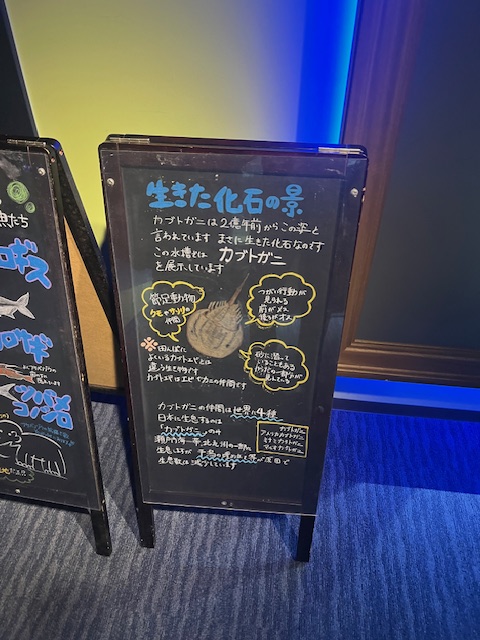 生きた化石の景
カブトガニは2億年前からこの姿と
言われています まさに生きた化石なのです
この水槽では カブトガニ
を展示しています
節足動物
クモやサソリの
仲間
つがい行動が
見られる
前がメス
後ろがオス
※田んぼに
よくいるカブトエビとは
違う生き物です
カブトエビはエビやカニの仲間です
砂に潜って
いることもある
カブトガニの仲間は世界に4種
日本に生息するのは
「カブトガニ」のみ
瀬戸内海や北九州の一部に
生息するが
生息数は減少しています
カブトガニ
アメリカカブトガニ
ミナミカブトガニ
マルオカブトガニ
たち
ツバメ
コノシロ